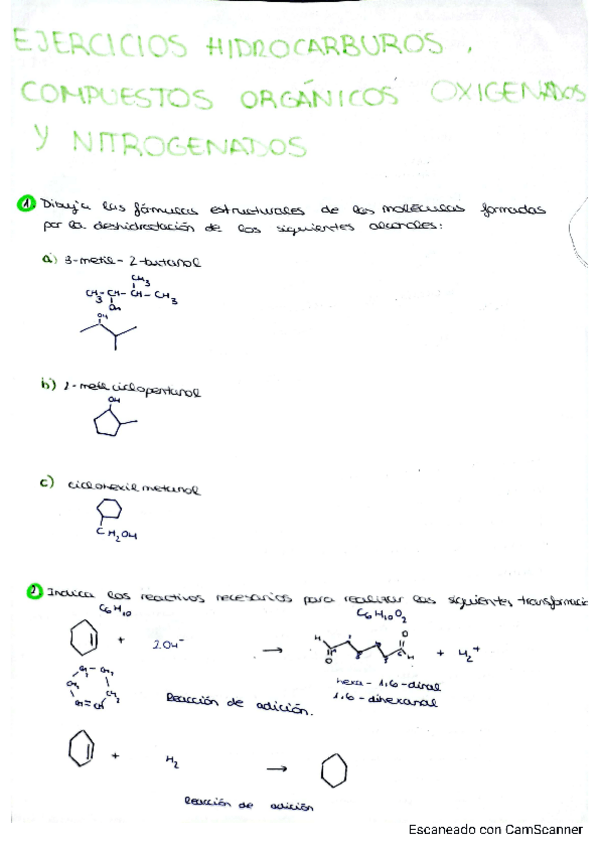 EJERCICIOS HIDROCARBUROS,
COMPUESTOS ORGÁNICOS OXIGENADOS
Y NITROGENADOS
1. Dibuja las fórmulas estructurales de las moléculas formadas
por la deshidratación de los siguientes alcoholes:
a) 3-metil-2-butanol
CH3
CH3-CH-CH-CH3
OH
OH
b) 2-metilciclopentanol
OH
c) ciclohexilmetanol
CH2OH
2. Indica los reactivos necesarios para realizar las siguientes transformacio
C6H10 C6H10O2
+ 2OH- → H O O H + H2+
hexa-1,6-diral
1,6-dihexanal
Reacción de adición.
+ H2 →
Reacción de adición
Escaneado con CamScanner